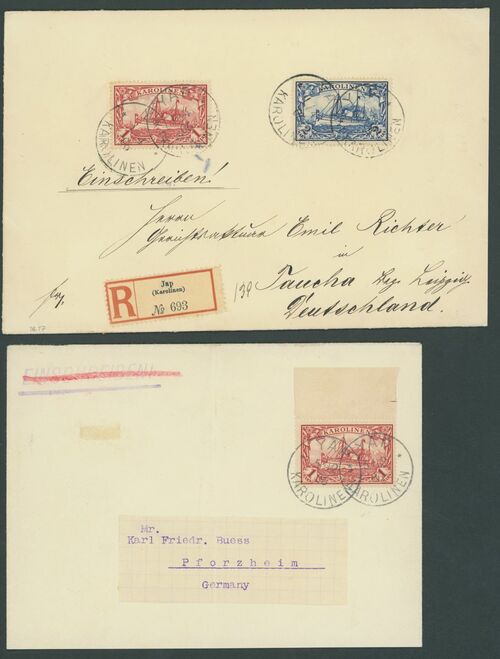 KAROLINEN
1
KAROLINEN
KAROLINEN
2
KAROLINEN
KAROLINEN
Einschreiben!
Herrn
Emil Richter
in
Taucha Bez. Leipzig.
Deutschland.
R
Jap
(Karolinen)
No 693
EINSCHREIBEN!
KAROLINEN
1
1
JAP
KAROLINEN
KAROLINEN
Mr.
Karl Friedr. Buess
Pforzheim
Germany